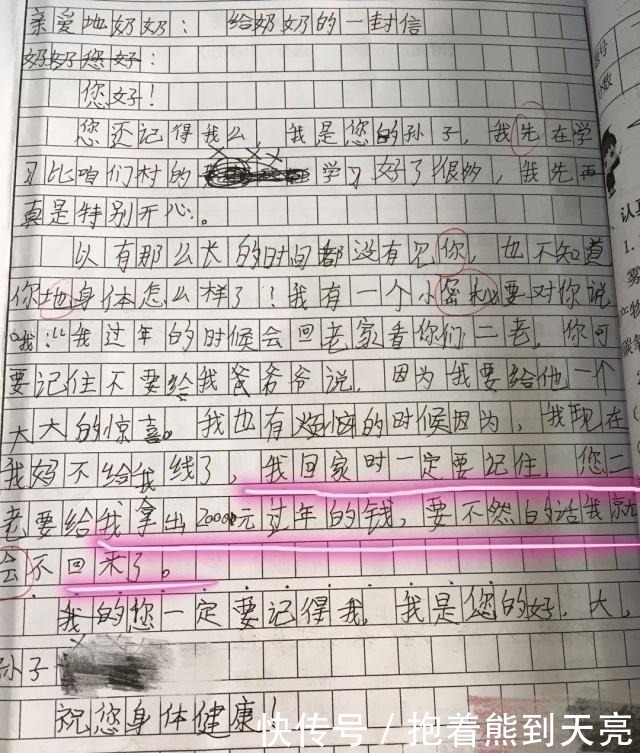 亲爱地奶奶： 给奶奶的一封信
奶奶您好：
您好！
您还记得我么 我是您的孙子，我先在学
习比咱们村的 学习好了很多，我先再
真是特别开心。
以有那么长的时间都没有见你，也不知道
你地身体怎么样了！我有一个小密秘要对你说
哦！！！我过年的时候会回老家看你们二老，你可
要记住不要给我爸爷爷说，因为我要给他一个
大大的惊喜。我也有烦恼的时候因为，我现在
我妈不给我线了，我回家时一定要记住，您二
老要给我拿出20000元过年的钱，要不然的话我就
会不回来了。
我的您一定要记得我，我是您的好，大，
孙子
祝您身体健康！！
快传号 / 抱着熊到天亮
认真
1.
雾